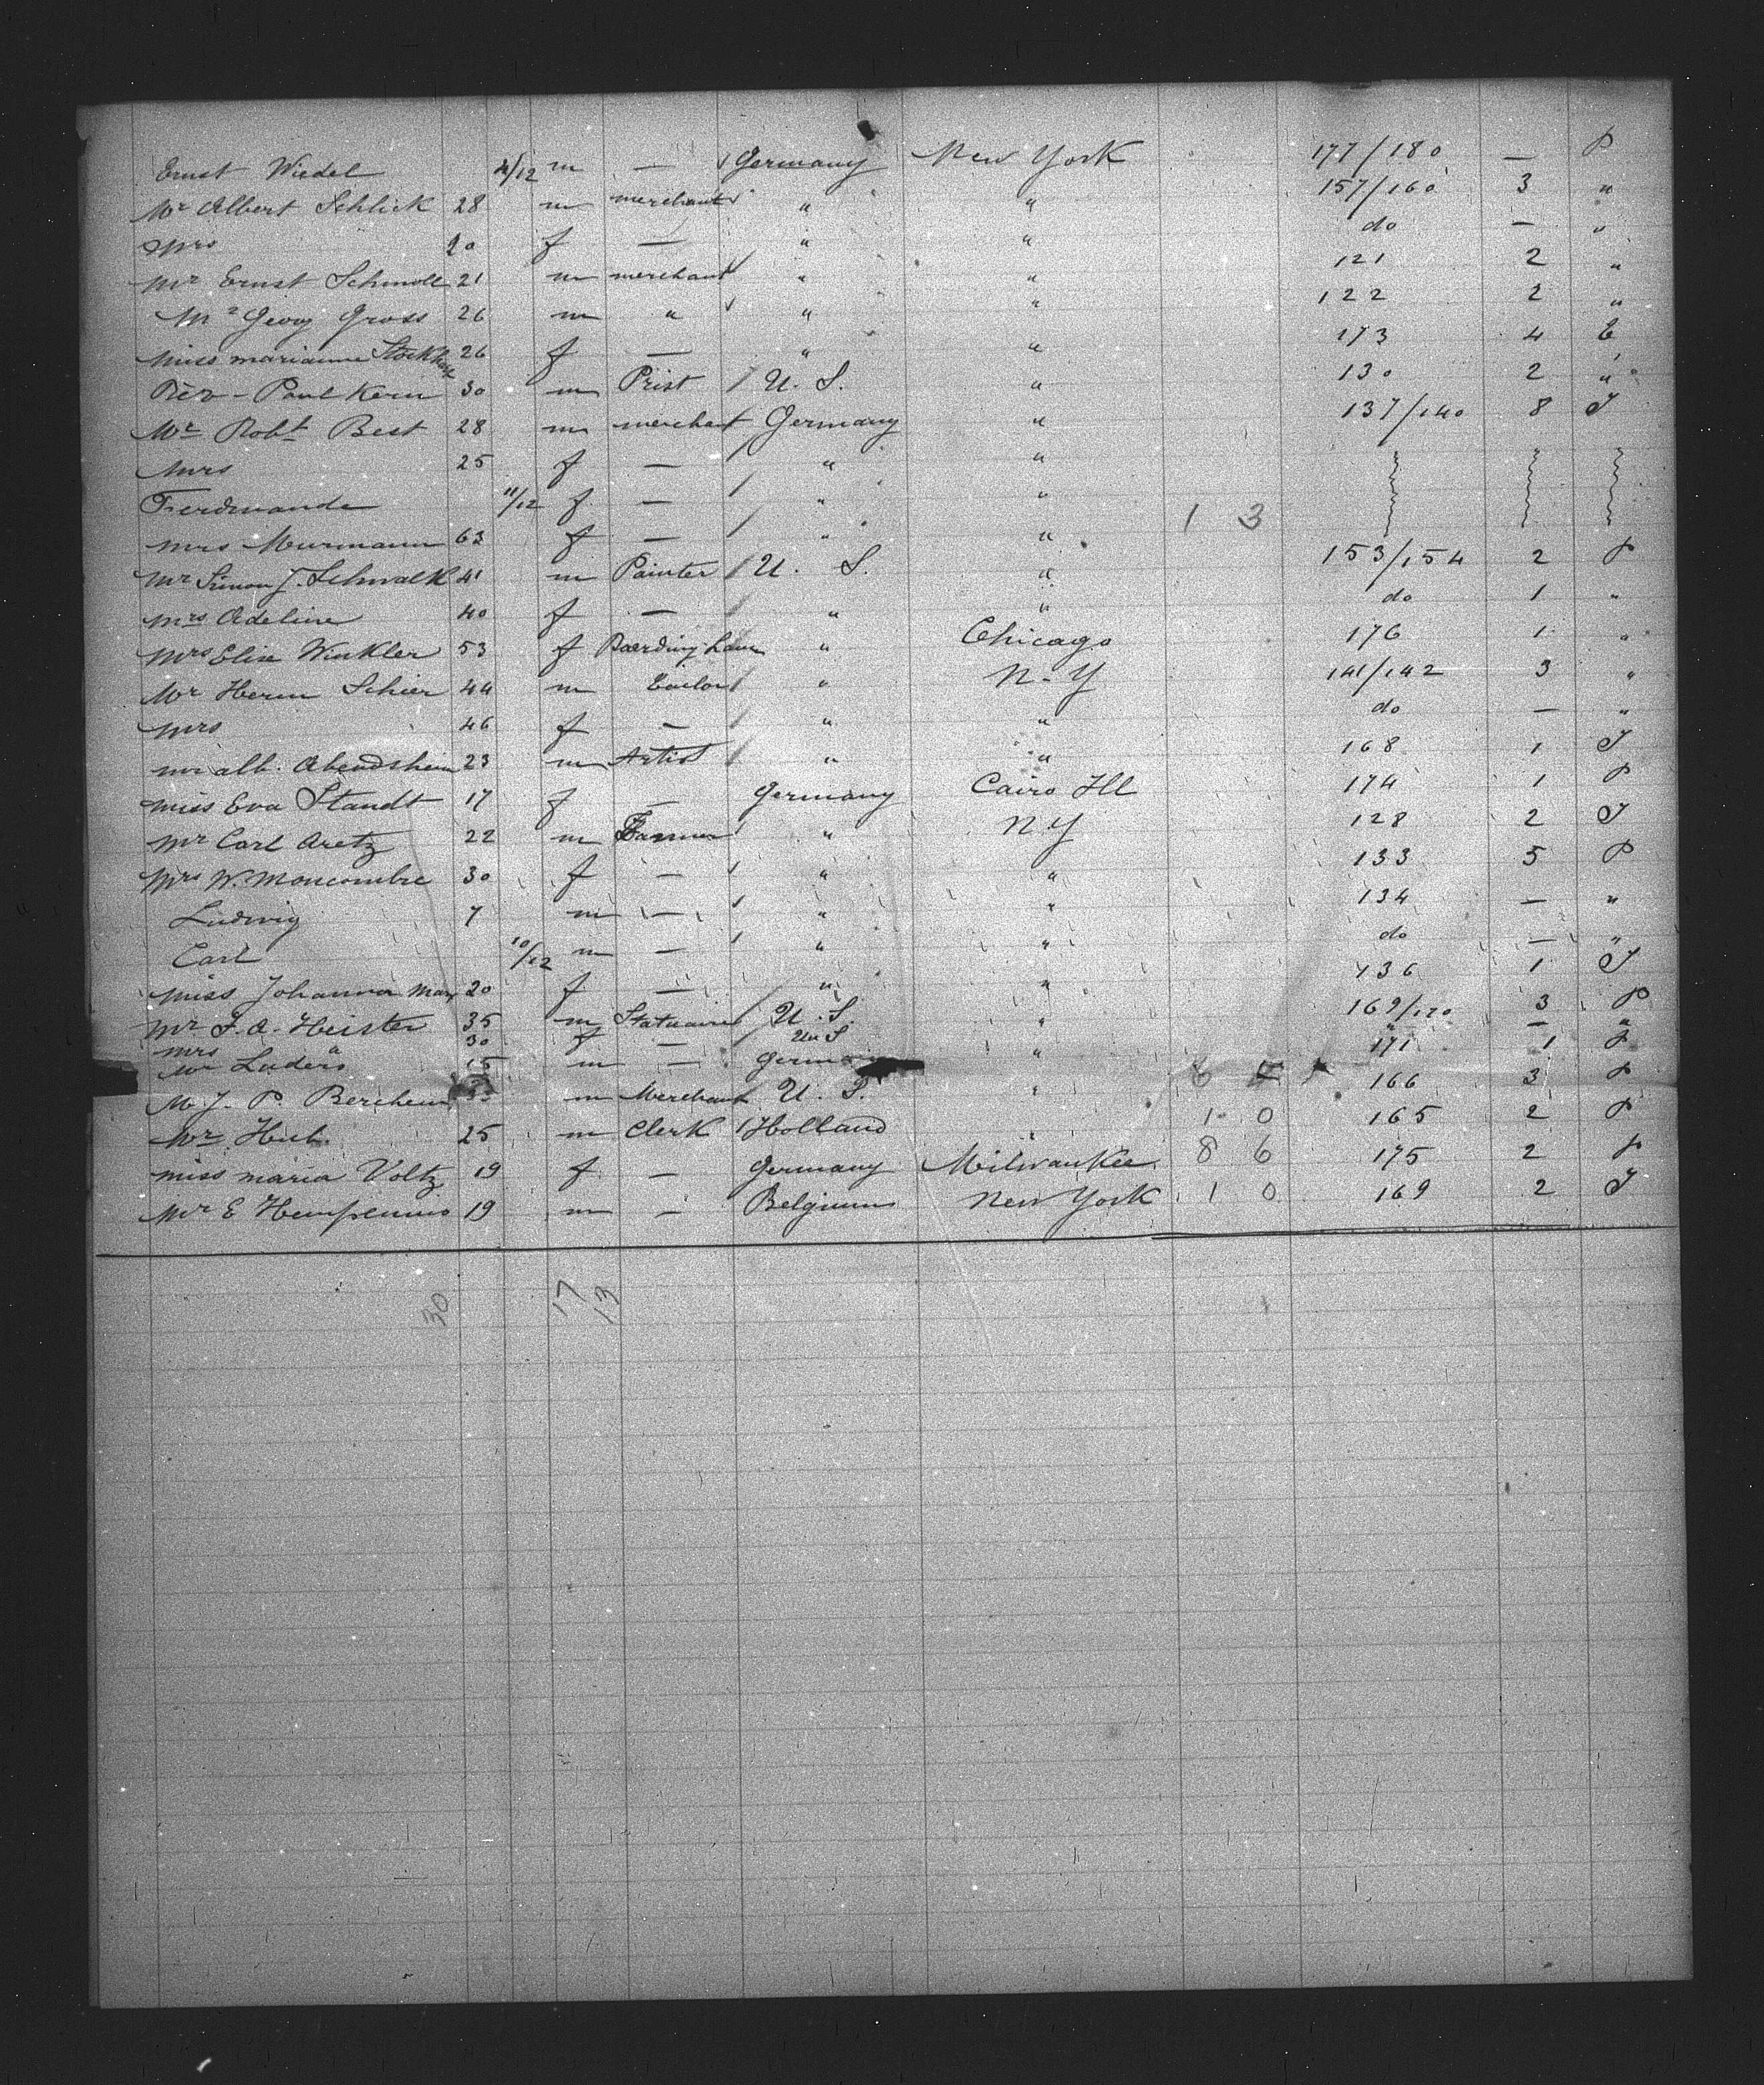 Ernst Wiedel 4/12 m — Germany New York 177/180 — P
Mr Albert Schlick 28 m merchant " " 157/160 3 "
Mrs 20 f — " " do — "
Mr Ernst Schmoll 21 m merchant " " 121 2 "
Mr Georg Gross 26 m " " " 122 2 "
Miss Marianne 26 f — " " 173 4 C
Rev - Paul Kern 30 m Prist U. S. " 130 2 "
Mr Robt Best 28 m merchant Germany " 137/140 8 S
Mrs 25 f — " "
Ferdinande 11/12 f — " " 1 3
Mrs Murmann 63 f — " "
Mr Simon J. Schwalk 41 m Painter U. S. " 153/154 2 P
Mrs Adeline 40 f — " " do 1 "
Mrs Elise Winkler 53 f " Chicago 176 1 "
Mr Herm Schier 44 m " N-Y 141/142 3 "
Mrs 46 f — " " do — "
Mr Alb. Abendshein 23 m Artist " " 168 1 S
Miss Eva Standt 17 f — Germany Cairo Ill 174 1 P
Mr Carl Aretz 22 m Farmer " N Y 128 2 S
Mrs W. Moncombre 30 f — " " 133 5 P
Ludwig 7 m — " " 134 — "
Carl 10/12 m — " " do — "
Miss Johanna Marx 20 f — " " 136 1 S
Mr F. A. Heister 35 m Statuaire U. S. " 169/170 3 P
Mrs 30 f — U. S " — "
Mr Luders 15 m — " 171 1 P
Mr J. P. Berchem m Merchant U. S. " 166 3 P
Mr Hub. 25 m Clerk Holland 1 0 165 2 P
Miss Maria Voltz 19 f — Germany Milwaukee 8 6 175 2 P
Mr E Hempenius 19 m — Belgium New York 1 0 169 2 S
30 17
13